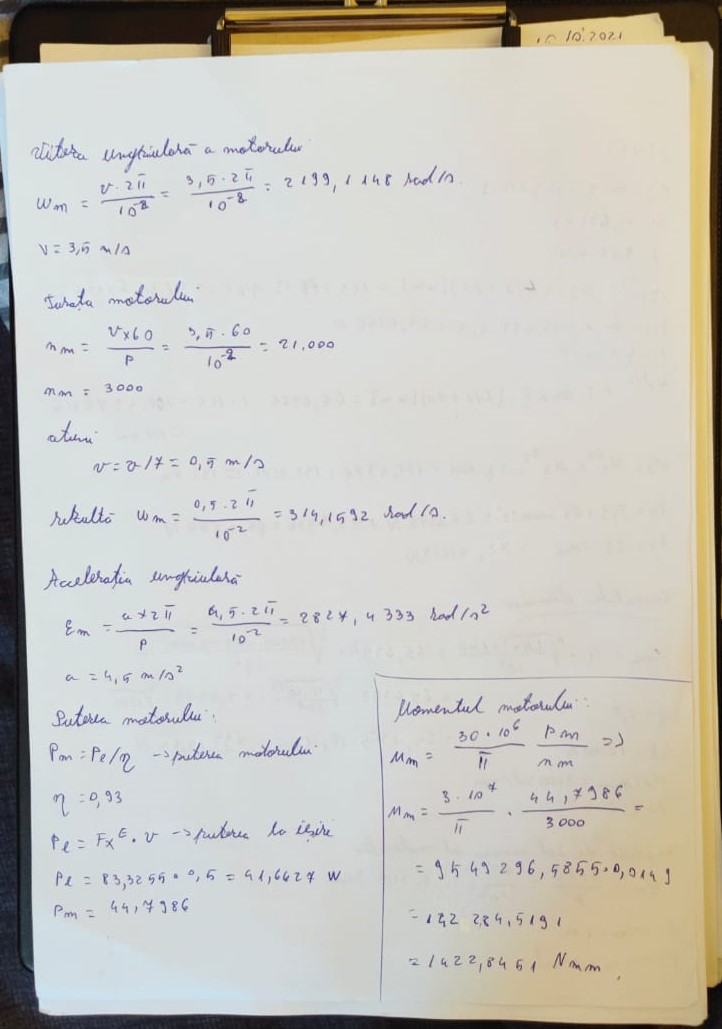 10.10.2021
Viteza unghiulară a motorului
ωm = v·2π / 10^-2 = 3,5·2π / 10^-2 = 2199,1148 rad/s.
v = 3,5 m/s
Turația motorului
nm = v×60 / p = 3,5·60 / 10^-2 = 21.000
nm = 3000
atunci
v = v/7 = 0,5 m/s
rezultă ωm = 0,5·2π / 10^-2 = 314,1592 rad/s.
Accelerația unghiulară
Em = a×2π / p = 4,5·2π / 10^-2 = 2827,4333 rad/s²
a = 4,5 m/s²
Puterea motorului:
Pm = Pe/η → puterea motorului
η = 0,93
Pe = Fx^E · v → puterea la ieșire
Pe = 83,3255 · 0,5 = 41,6627 W
Pm = 44,7986
Momentul motorului:
Mm = 30·10^6 / π · Pm / nm =>
Mm = 3·10^7 / π · 44,7986 / 3000 =
= 9549296,5855·0,0149
= 142 284,5191
= 1422,8451 Nmm.